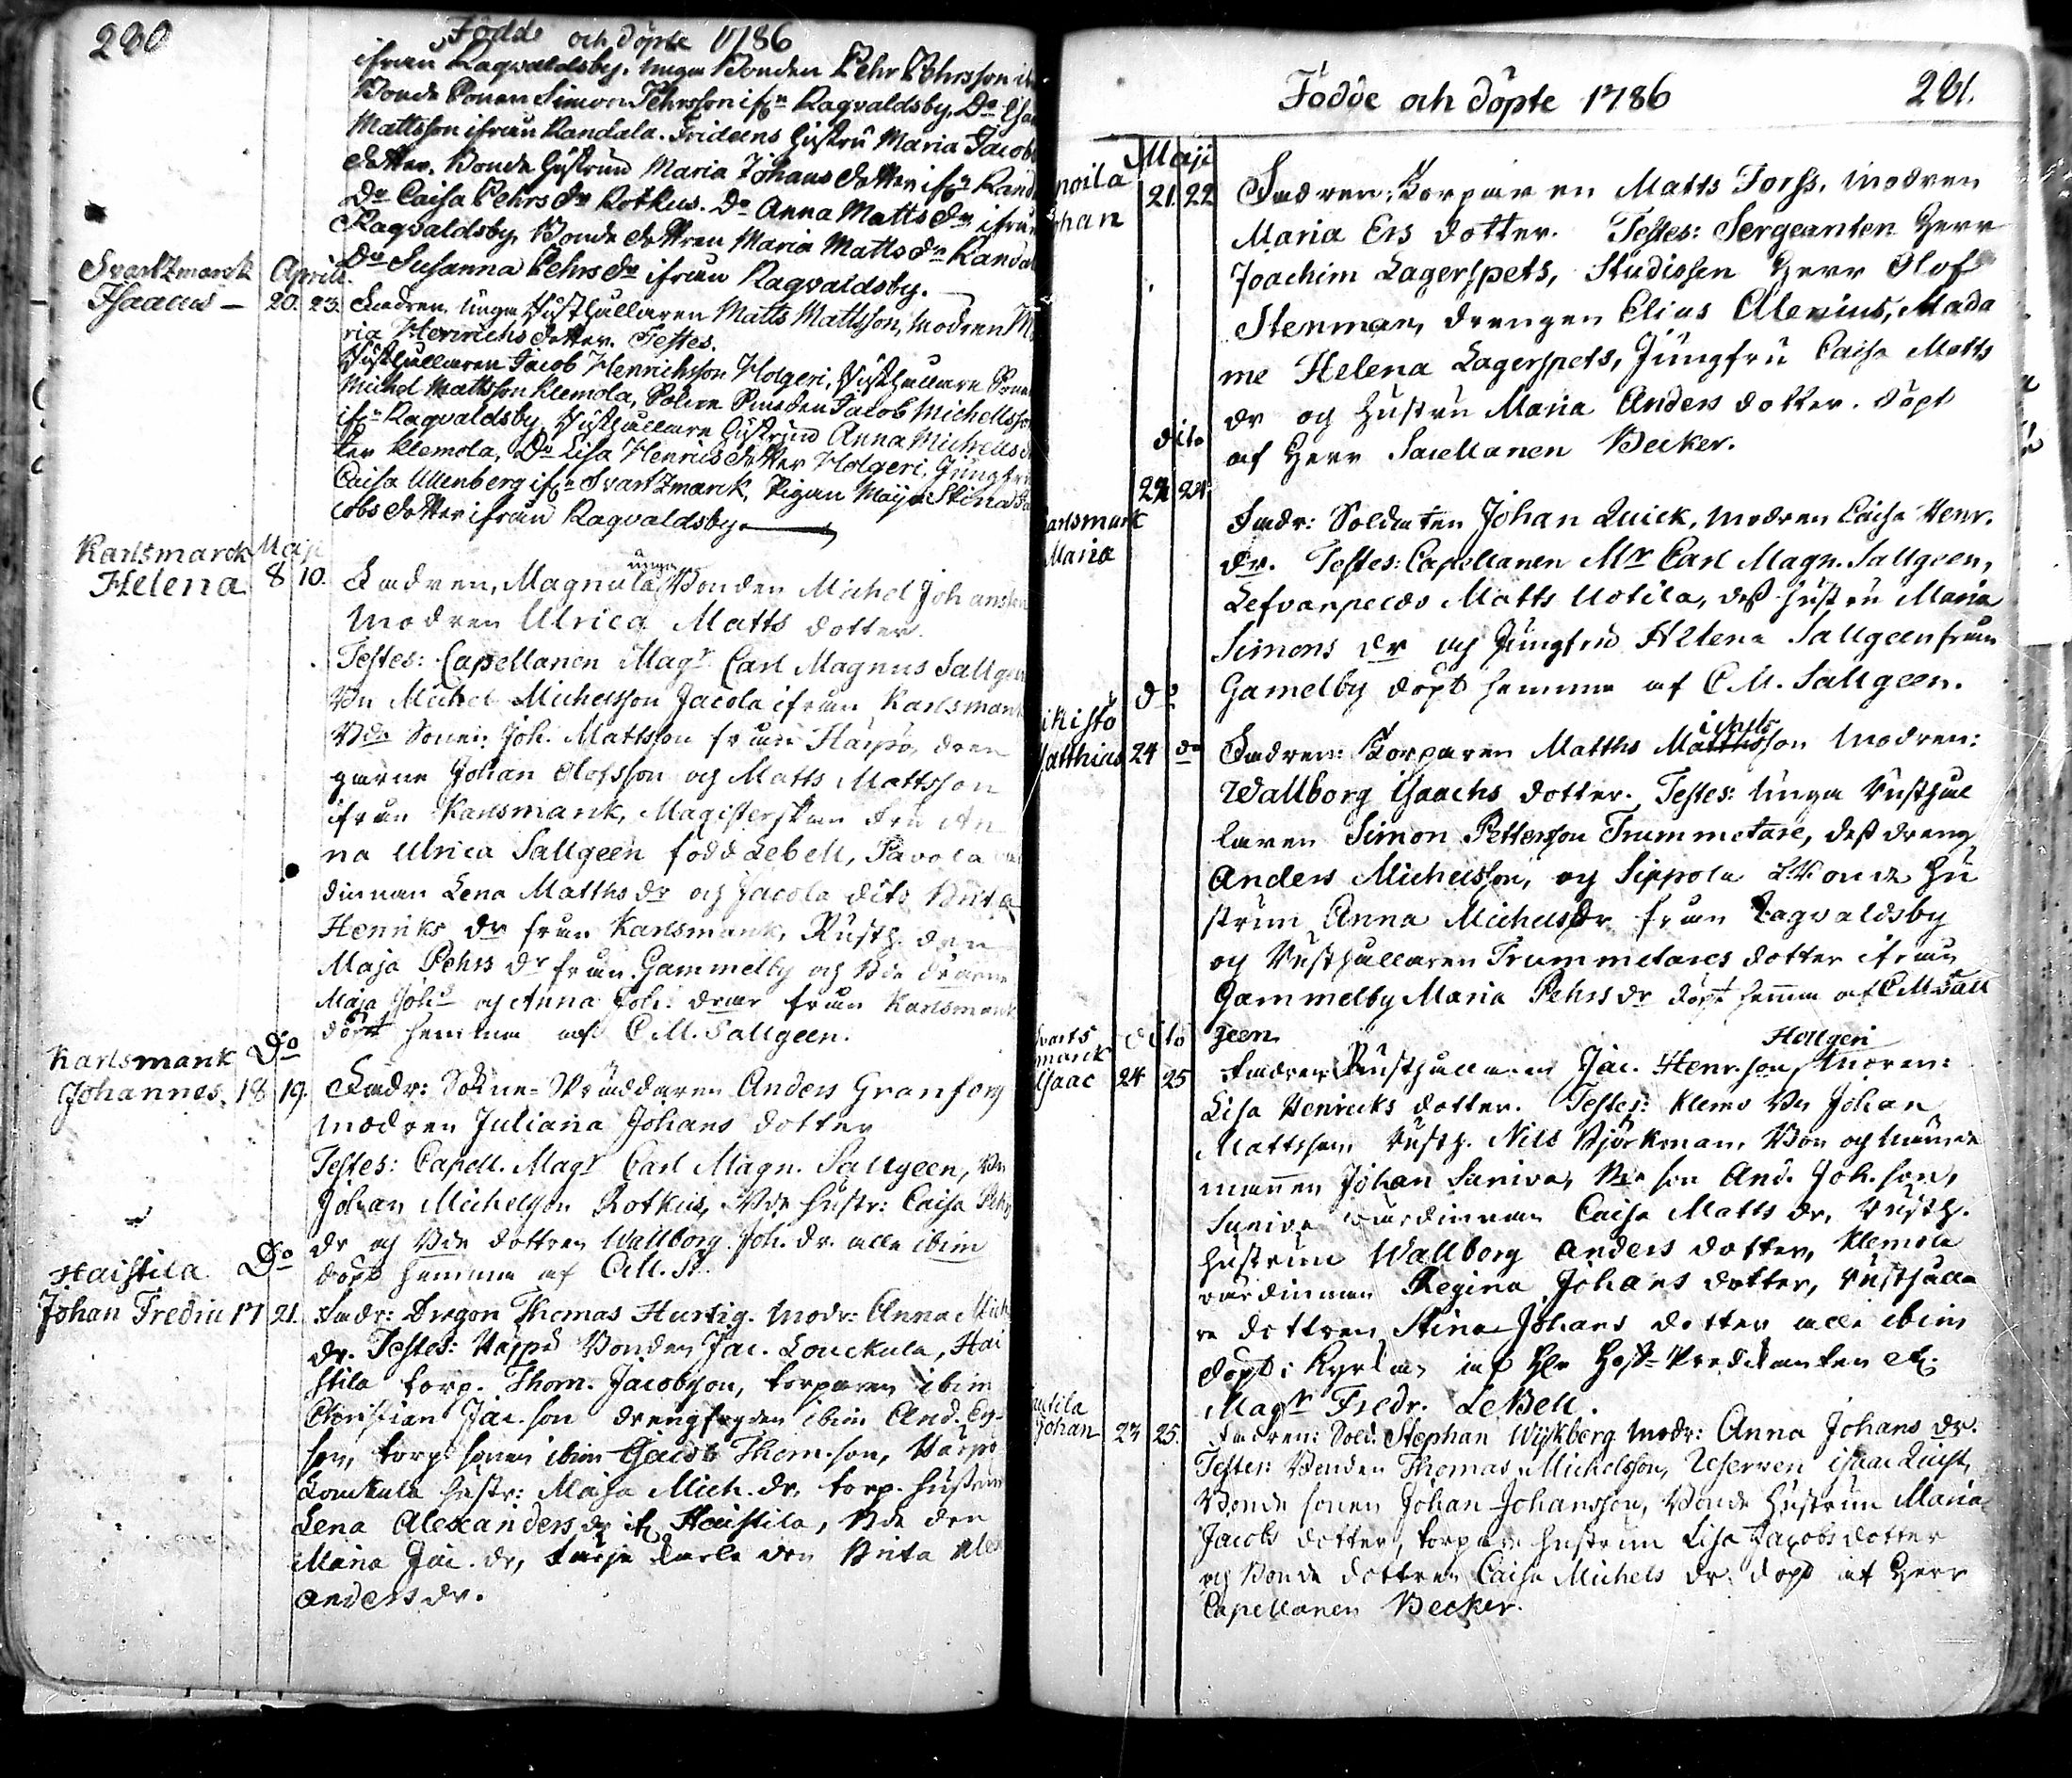 280
Födde och döpte 1786
ifrån Ragvaldsby. unga Bonden Pehr Pehrsson
Bonde Sonen Simon Pehrsson ifr:n Ragvaldsby, Do
Mattsson ifrån Randala. Fridsens Hustru Maria Jacobs
dotter. Bonde Hustrun Maria Johans dotter ifr:n Rand
Do Caisa Pehrs dr Rotkus. Do Anna Matts dr ifrån
Ragvaldsby, Bonde dottren Maria Matts dr Randal
Do Susanna Pehrs dr ifrån Ragvaldsby.
Svartzmarck Aprill.
Isaacus – 20. 23. Fadren unga Rusthållaren Matts Mattsson, Modren Ma
ria Henrichs dotter. Testes.
Rusthållaren Jacob Henrichsson Holgeri, Rusthållare Sonen
Michel Mattsson Klemola, Jacob Michellsson
ifr:n Ragvaldsby, Rusthållare Hustrun Anna Michells dot
ter Klemola, Do Lisa Henrics dotter Holgeri, Jungfru
Caisa Ullenberg ifr:n Svartzmarck, Pigan Maija Stina Ja
cobs dotter ifrån Ragvaldsby.
Karlsmarck Maji
Helena 8 10. Fadren, Magnula unga Bonden Michel Johansson
Modren Ulrica Matts dotter.
Testes: Capellanen Magr Carl Magnus Sallgeen
Bn Michel Michelsson Jacola ifrån Karlsmark
Bde Sonen Joh. Mattsson från Harpö, dren
garne Johan Olofsson og Matts Mattsson
ifrån Karlsmark, Magisterskan Fru An
na Ulrica Sallgeen född Lebell, Pavola vär
dinnan Lena Matths dr og Jacola dito Brita
Henriks dr från Karlsmark, Rusth. den
Maja Pehrs dr från Gammelby og Bde drarne
Maja Johs og Anna Joh: drar från Karlsmark
döpt hemma af C. M. Sallgeen.
Karlsmark Do
Johannes. 18 19. Fadr: Sokne-Skräddaren Anders Granfors
modren Juliana Johans dotter
Testes: Capell. Magr Carl Magn. Sallgeen, Bn
Johan Michelson Rotkus, Bde hustr: Caisa Pehrs
dr og Bde dottren Wallborg Joh. dr. alla ibim
döpt hemma af C. M. S.
Haistila Do
Johan Fredric 17 21. Fadr: Dragon Thomas Hurtig. modr: Anna Mich
dr. Testes: Harpö Bonden Jac. Louckula, Hai
stila torp. Thom. Jacobson, torparen ibim
Christian Jac. son drengfogden ibim And. Er
son, torp. sonen ibim Jacob Thom. son, Harpö
Louckula hustr: Maja Mich. dr, torp. hustrun
Lena Alexanders dr ifr Haistila, Bde den
Maria Jac. dr, Brita Alex
anders dr.
Födde och döpte 1786 281.
Maji
noila
Johan 21. 22 Fadren: Torparen Matts Forss. modren
Maria Ers dotter. Testes: Sergeanten Herr
Joachim Lagerspets, Studiosen Herr Olof
Stenman, drengen Elias Alenius, Mada
me Helena Lagerspets, Jungfru Caisa Matts
dr og hustru Maria Anders dotter. döpt
af Herr Sacellanen Becker.
dito
Karlsmark 22 24.
Maria Fadr: Soldaten Johan Quick, modren Caisa Henr.
dr. Testes: Capellanen Mr Carl Magn. Sallgeen,
Matts Uotila, dess hustru Maria
Simons dr og Jungfru Helena Sallgeen från
Gamelby döpt hemma af C. M. Sallgeen.
do
ikistö
Matthias 24 do Fadren: Torparen Matths Michelsson modren:
Wallborg Isaachs dotter. Testes: unga Rusthål
laren Simon Petterson Trummetare, dess dreng
Anders Michelsson, og Sippola Bonde hu
strun Anna Michelsdr från Ragvaldsby
og Rusthållaren Trummetares dotter ifrån
Gammelby Maria Pehrs dr döpt hemma af C M Sall
geen.
Svarts
marck dito
Isaac 24 25 Fadren Rusthållaren Jac. Henr. son Hollgeri, Moren:
Lisa Henricks dotter. Testes: Klemo Bn Johan
Mattsson Rusth. Nils Björkman, Bon og Nämnde
mannen Johan Sariva, Bde son And. Joh. son,
Sariva värdinnan Caisa Matts dr, Rusth.
hustrun Wallborg Anders dotter, Klemola
värdinnan Regina Johans dotter, Rusthålla
re dottren Stina Johans dotter alla ibim
döpt i Kyrkan af Hr Hof-Predikanten etc.
Magr Fredr. LeBell.
Johan 23 25. Fadren: Sold. Stephan Wijkberg modr: Anna Johans dr.
Testes: Bonden Thomas Michelsson, Reserven Isaac Quist,
Bonde sonen Johan Johansson, Bonde Hustrun Maria
Jacobs dotter, torpare hustrun Lisa Jacobs dotter
og Bonde dottren Caisa Michels dr: döpt af Herr
Capellanen Becker.